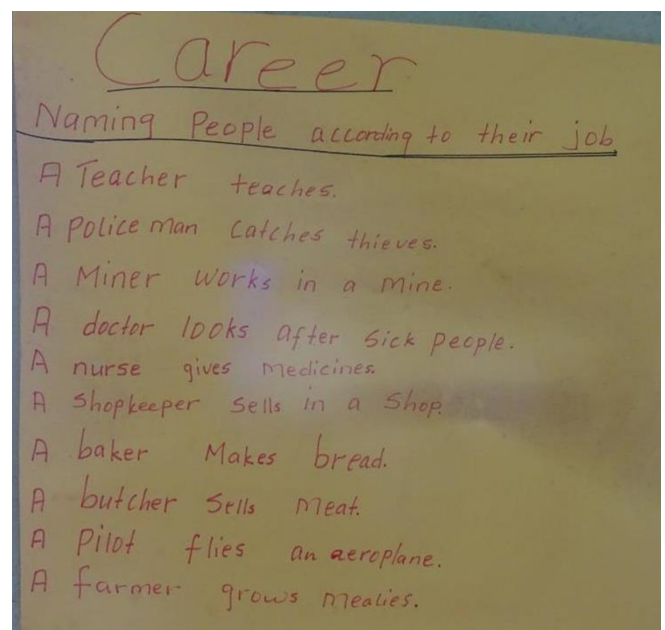 Career
Naming People according to their job
A Teacher teaches.
A Police man Catches thieves.
A Miner works in a mine.
A doctor looks after sick people.
A nurse gives medicines.
A Shopkeeper sells in a shop.
A baker Makes bread.
A butcher sells meat.
A Pilot flies an aeroplane.
A farmer grows mealies.